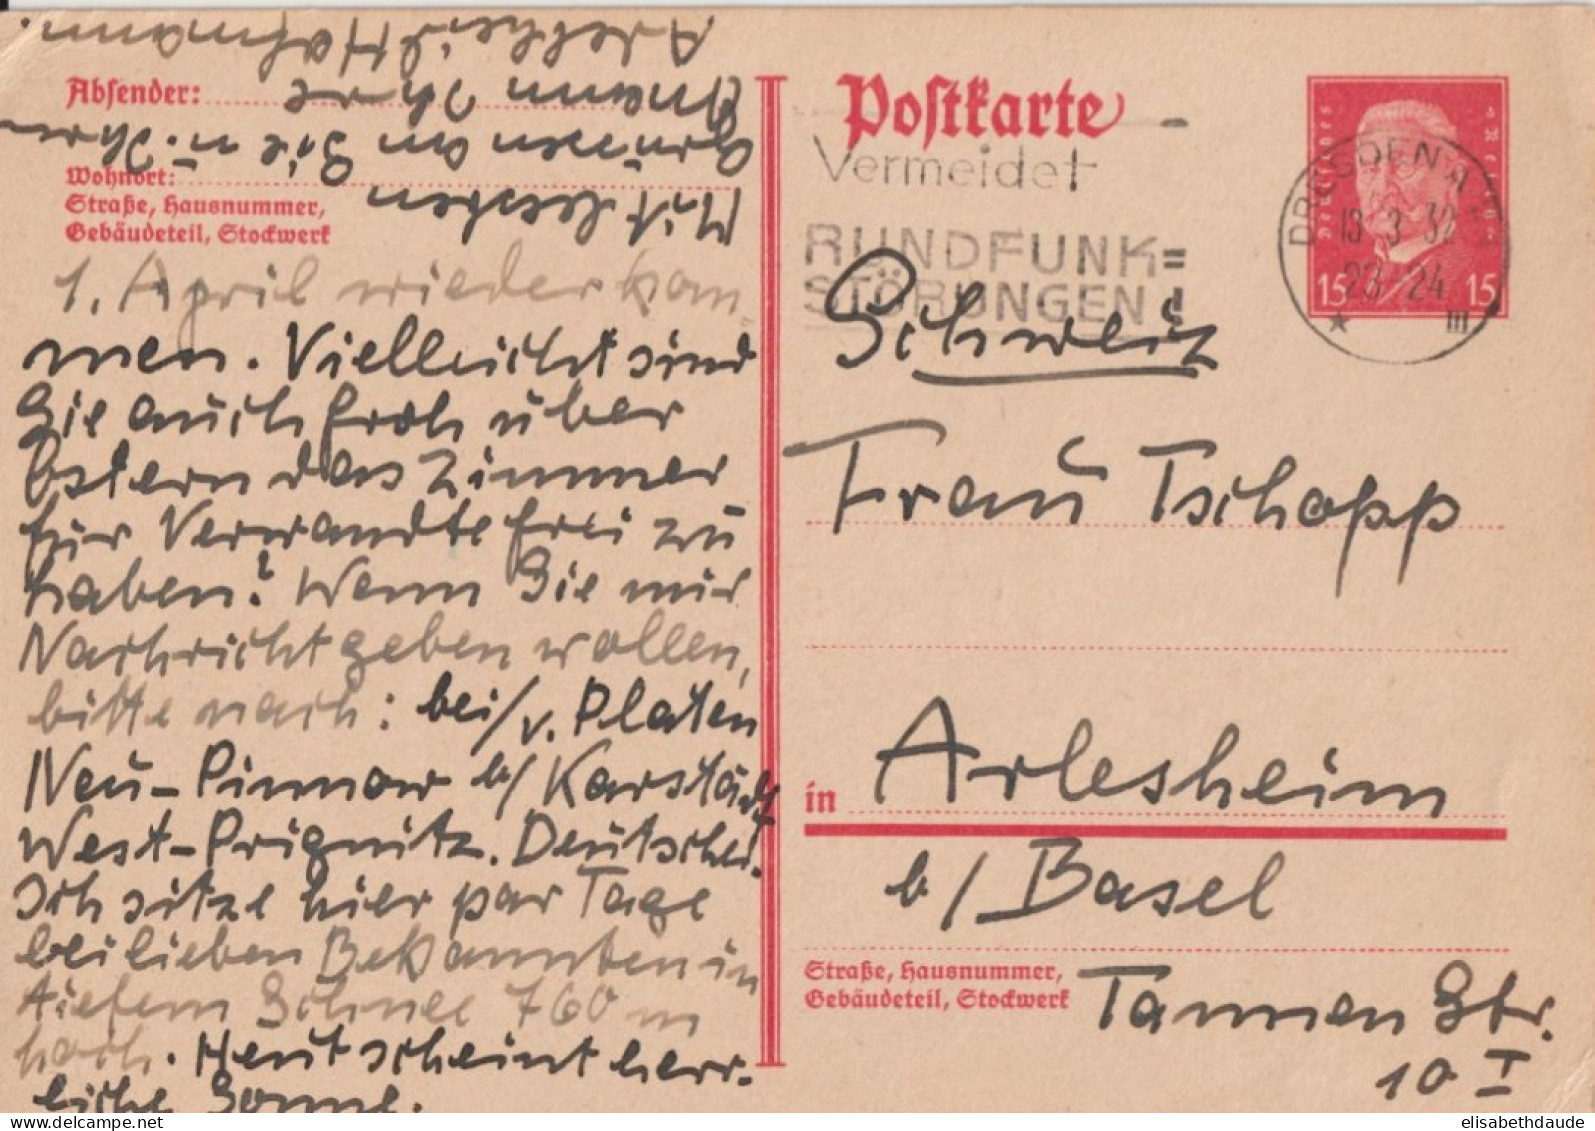 Absender:
Wohnort:
Straße, Hausnummer,
Gebäudeteil, Stockwerk
1. April wieder kom
men. Vielleicht sind
Sie auch froh über
Ostern das Zimmer
für Verwandte frei zu
haben? Wenn Sie mir
Nachricht geben wollen,
bitte nach: bei/v. Platen
Neu-Pinnow b/ Karstädt
West-Prignitz. Deutschl.
Ich sitze hier par Tage
bei lieben Bekannten in
tiefem Schnee 760 m
hoch. Heut scheint herr-
liche Sonne.
Mit besten
Grüssen an Sie u. Ihren
Mann Ihre
Adelheid Hofmann.
Postkarte
Vermeidet
RUNDFUNK=
STÖRUNGEN!
Deutsches Reich
15 15
DRESDEN A
13 3 32
23-24
* III
Schweiz
Frau Tschopp
in Arlesheim
b/ Basel
Straße, Hausnummer,
Gebäudeteil, Stockwerk
Tannen Str.
10 I
elisabethdaude